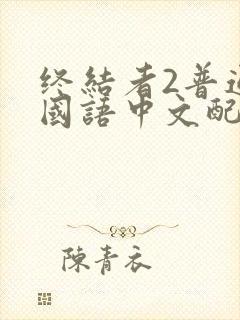 终結者2普通
國語中文配
陳青衣